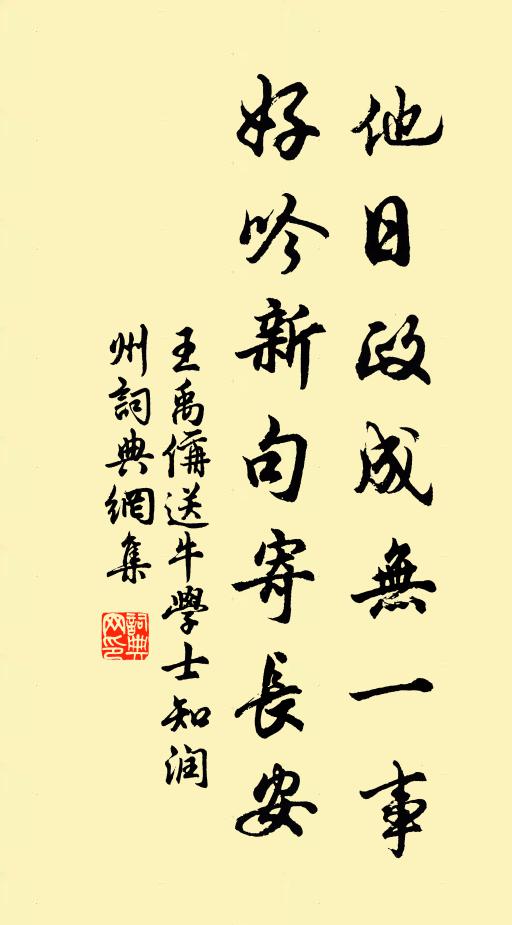 他日政成無一事
好吟新句寄長安
王禹偁送牛學士知润
州詞典網集
詞典网印